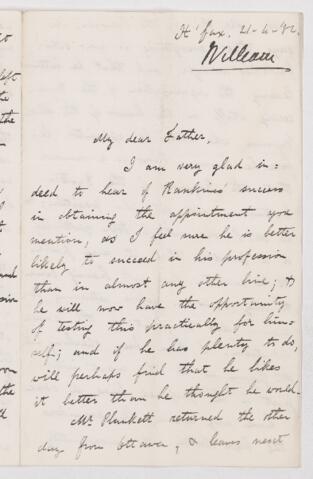 H'fax, 21-4-92.
William
My dear Father,
I am very glad in=
deed to hear of Rankine's success
in obtaining the appointment you
mention, as I feel sure he is better
likely to succeed in his profession
than in almost any other line; &
he will now have the opportunity
of testing this practically for him=
self; and if he has plenty to do,
will perhaps find that he likes
it better than he thought he would.
Mr. Plunkett returned the other
day from Ottawa, & leaves next